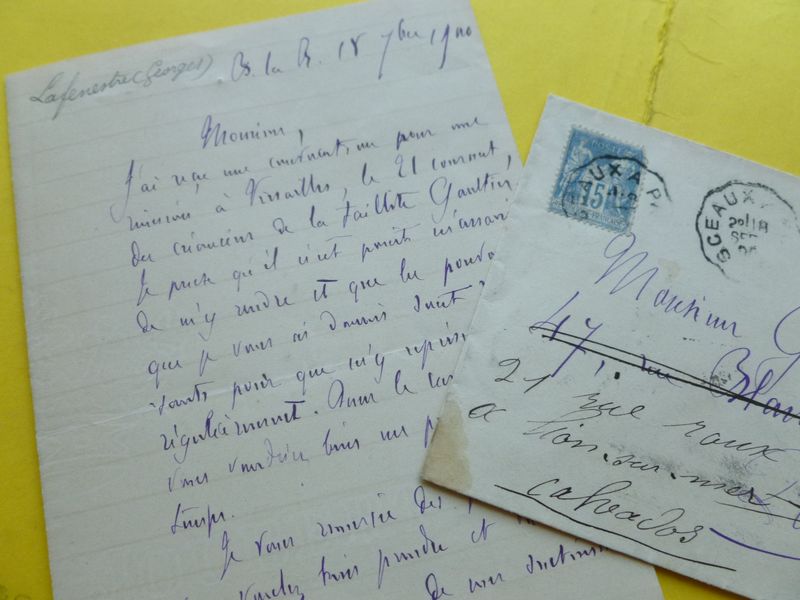 Lafenestre (Georges)
B. la R. 18 7bre 19
Monsieur,
J'ai reçu une convocation pour une
réunion à Versailles, le 21 courant,
des créanciers de la faillite Gaultier.
Je pense qu'il n'est point nécessair
de m'y rendre et que les pouvo
que je vous ai donnés sont
sants pour que m'y représ
régulièrement. Dans le cas
vous voudriez bien me p
temps.
Je vous remercie des
voulez bien prendre et
de mes sentimen
POSTE
15
AUX A P
SCEAUX
18
SEPT
Monsieur G
47, rue Blan
21 rue roux
a Lion-sur-mer
Calvados